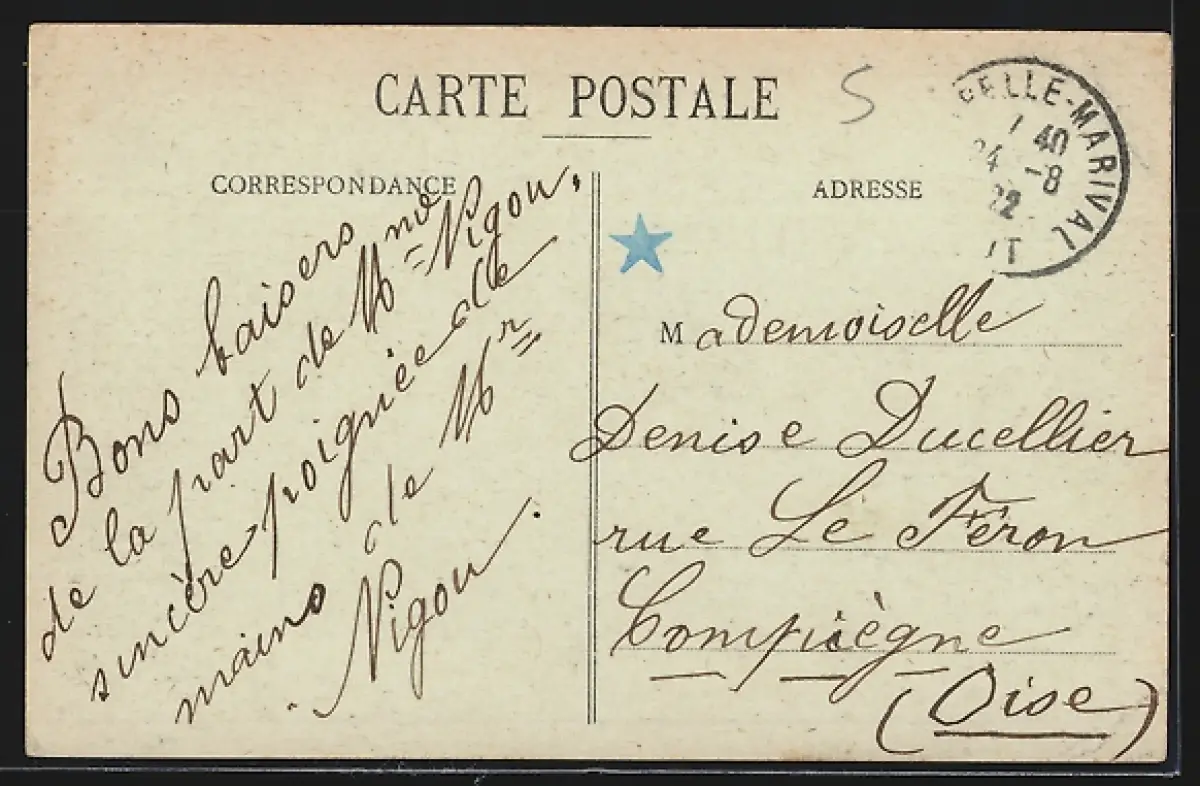 CARTE POSTALE
S
CORRESPONDANCE
Bons baisers
de la part de Mme Nigou,
sincère poignée de
mains de Mr
Nigou.
ADRESSE
PELLE-MARIVAL
40
24 -8
22
LOT
Mademoiselle
Denise Ducellier
rue Le Féron
Compiègne
(Oise)